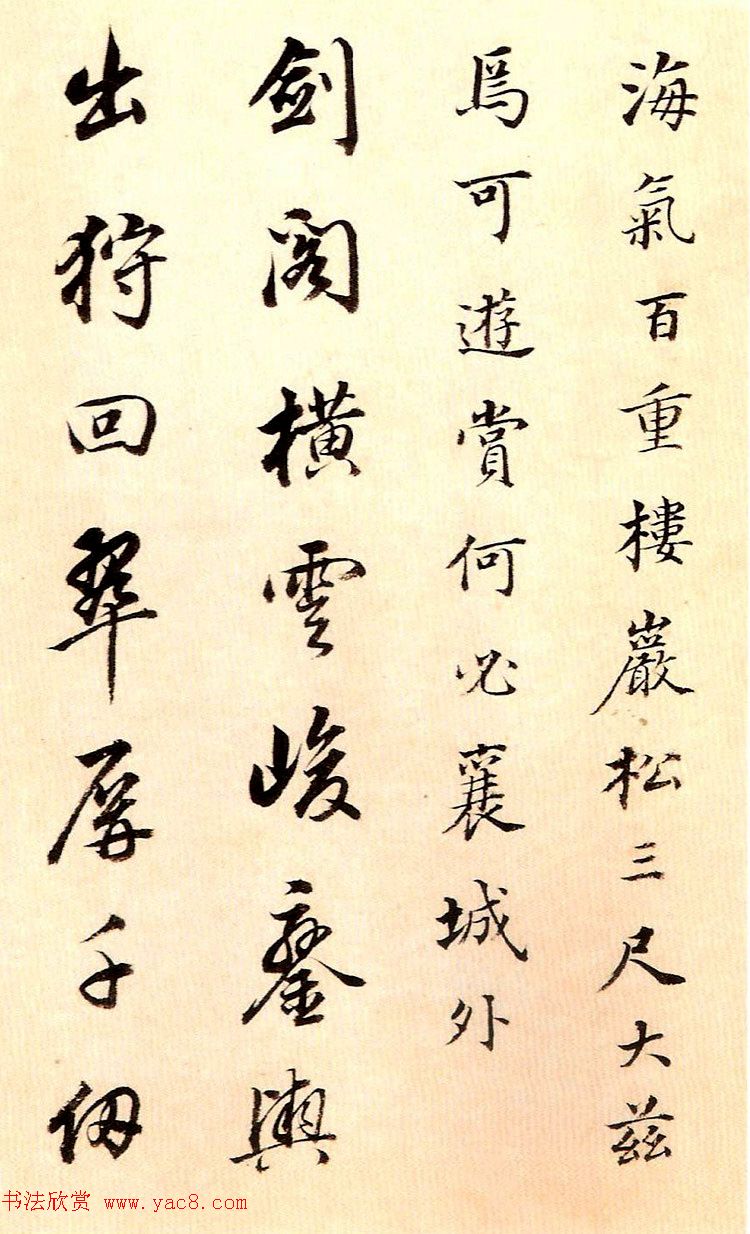 海氣百重樓巖松三尺大茲
焉可遊賞何必襄城外
劍閣橫雲峻鑾輿
出狩回翠屏千仞
书法欣赏 www.yac8.com